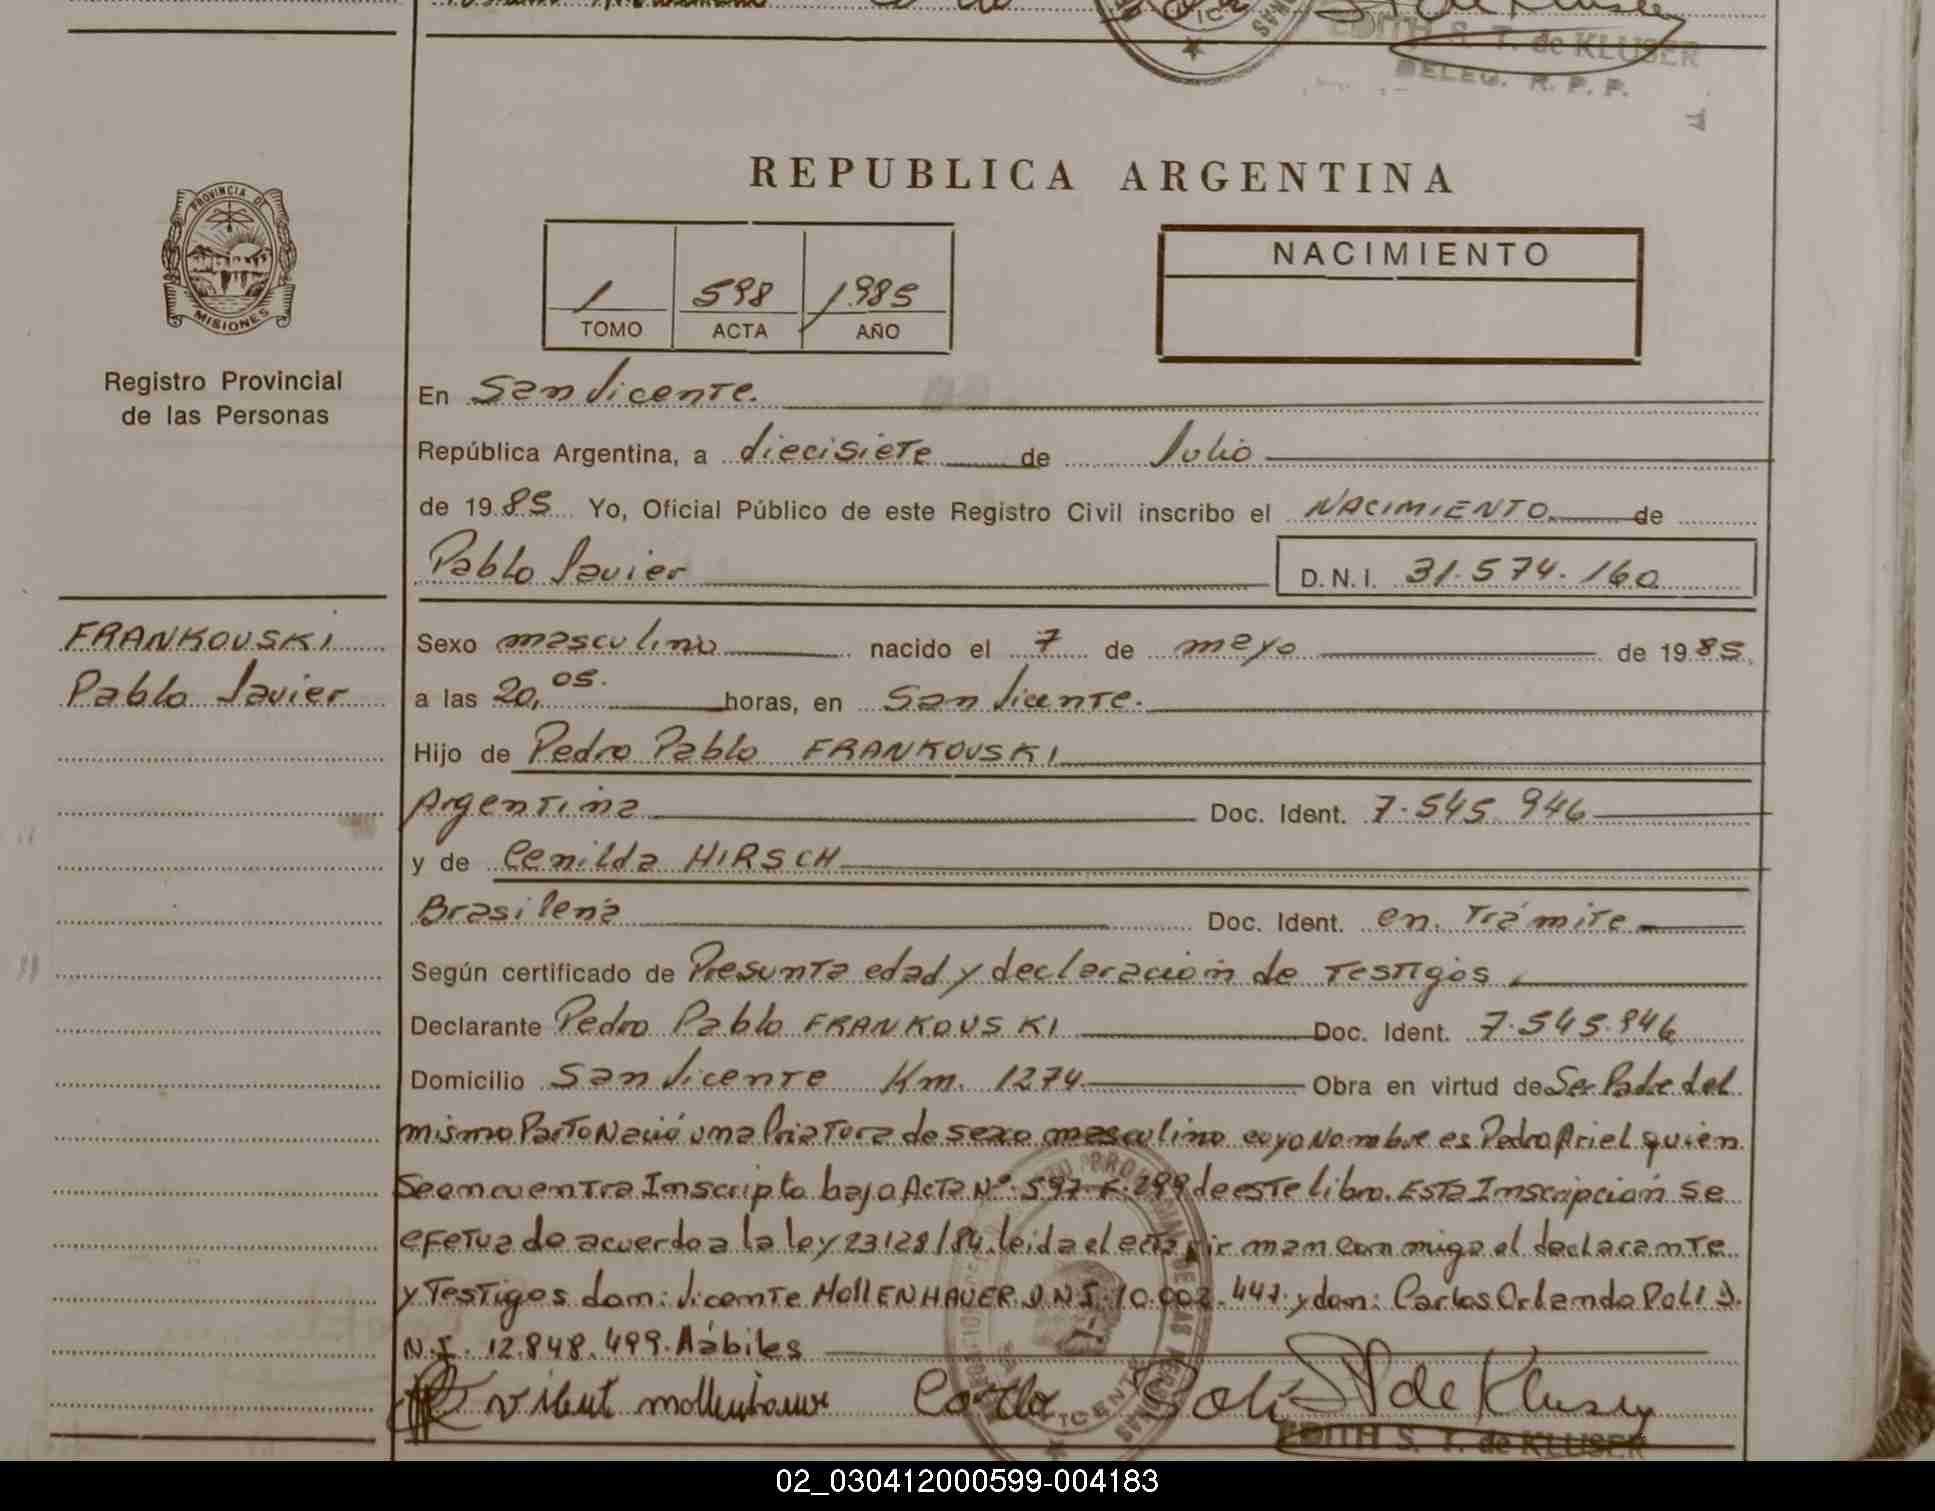 EDITH S. T. de KLUSER
DELEG. R. P. P.
REPUBLICA ARGENTINA
PROVINCIA DE
MISIONES
Registro Provincial
de las Personas
1 598 1985
TOMO ACTA AÑO
NACIMIENTO
En San Vicente.
República Argentina, a diecisiete de Julio
de 1985 Yo, Oficial Público de este Registro Civil inscribo el NACIMIENTO de
Pablo Javier D.N.I. 31.574.160
FRANKOUSKI
Pablo Javier
Sexo masculino nacido el 7 de mayo de 1985
a las 20,05. horas, en San Vicente.
Hijo de Pedro Pablo FRANKOUSKI
Argentina Doc. Ident. 7.545.946
y de Cenilda HIRSCH
Brasileña Doc. Ident. en trámite
Según certificado de Presunta edad y declaración de testigos
Declarante Pedro Pablo FRANKOUSKI Doc. Ident. 7.545.946
Domicilio San Vicente Km. 1274 Obra en virtud de Ser Padre del
mismo Parto Nació una Criatura de sexo masculino cuyo Nombre es Pedro Ariel quien
Se encuentra Inscripto bajo Acta Nº 597-F. 299 de este libro. Esta Inscripción se
efetua de acuerdo a la ley 23128/84. leida el acta firman conmigo el declarante
y Testigos dom: Vicente MollENHAUER D.N.I. 10.002.447 y dom: Carlos Orlando Poli D.
N.I. 12.848.499. Hábiles
S T de Kluser
EDITH S. T. de KLUSER
02_030412000599-004183